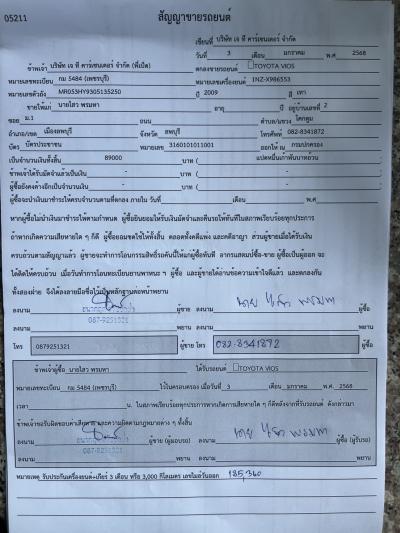 05211
สัญญาขายรถยนต์
เขียนที่ บริษัท เจ ที คาร์เซนเตอร์ จำกัด
วันที่ 3 เดือน มกราคม พ.ศ. 2568
ข้าพเจ้า บริษัท เจ ที คาร์เซนเตอร์ จำกัด (พี่เปิ้ล) ตกลงขายรถยนต์ TOYOTA VIOS
หมายเลขทะเบียน กม 5484 (เพชรบุรี) หมายเลขเครื่องยนต์ 1NZ-X986553
หมายเลขตัวถัง MR053HY9305135250 ปี 2009 สี เทา
ขายให้แก่ นายไสว พรมหา อายุ ปี อยู่บ้านเลขที่ 2
ซอย ม.1 ถนน ตำบล/แขวง โคกตูม
อำเภอ/เขต เมืองลพบุรี จังหวัด ลพบุรี โทรศัพท์ 082-8341872
บัตร บัตรประชาชน หมายเลข 3160101011001 ออกให้ ณ กรมปกครอง
เป็นจำนวนเงินทั้งสิ้น 89000 บาท ( แปดหมื่นเก้าพันบาทถ้วน )
ข้าพเจ้าได้รับมัดจำแล้วเป็นเงิน - บาท ( - )
ผู้ซื้อยังคงค้างอีกเป็นจำนวนเงิน - บาท ( - )
ผู้ซื้อจะนำเงินมาชำระให้ครบจำนวนตามที่ตกลง ภายใน วันที่ เดือน พ.ศ.
หากผู้ซื้อไม่นำเงินมาชำระให้ตามกำหนด ผู้ซื้อยินยอมให้ริบเงินมัดจำและคืนรถให้ทันทีในสภาพเรียบร้อยทุกประการ
ถ้าหากเกิดความเสียหายใด ๆ ก็ดี ผู้ซื้อยอมชดใช้ให้ทั้งสิ้น ตลอดทั้งคดีแพ่ง และคดีอาญา ส่วนผู้ขายเมื่อได้รับเงิน
ครบถ้วนตามสัญญาแล้ว ผู้ขายจะทำการโอนกรรมสิทธิ์รถคันนี้ให้แก่ผู้ซื้อทันที อากรแสตมป์ซื้อ-ขาย ผู้ซื้อเป็นผู้ออก จะ
ได้คิดให้ครบถ้วน เมื่อวันทำการโอนทะเบียนยานพาหนะ ฯ ผู้ซื้อ และผู้ขายได้อ่านข้อความเข้าใจดีแล้ว และตกลงกัน
ทั้งสองฝ่าย จึงได้ลงลายมือชื่อไว้เป็นหลักฐานต่อหน้าพยาน
ลงนาม ผู้ขาย ลงนาม นาย ไสว พรมหา ผู้ซื้อ
087-9251321
ลงนาม พยาน ลงนาม พยาน
โทร 0879251321 ผู้ขาย โทร 082-8341872 ผู้ซื้อ
ข้าพเจ้าผู้ซื้อ นายไสว พรมหา ได้รับรถยนต์ TOYOTA VIOS
หมายเลขทะเบียน กม 5484 (เพชรบุรี) ไว้ในครอบครอง เมื่อวันที่ 3 เดือน มกราคม พ.ศ. 2568
เวลา น. ในสภาพเรียบร้อยทุกประการหากเกิดการเสียหายใด ๆ ก็ดีหลังจากที่รับรถยนต์ ดังกล่าวมา
ข้าพเจ้าขอรับผิดชอบค่าเสียหาย และความผิดตามกฎหมายต่าง ๆ ทั้งสิ้น
ลงนาม ผู้ขาย (ผู้มอบรถ) ลงนาม นาย ไสว พรมหา ผู้ซื้อ (ผู้รับรถ)
087-9251321
ลงนาม พยาน ลงนาม พยาน
หมายเหตุ รับประกันเครื่องยนต์+เกียร์ 3 เดือน หรือ 3,000 กิโลเมตร เลขไมล์วันออก 185,360